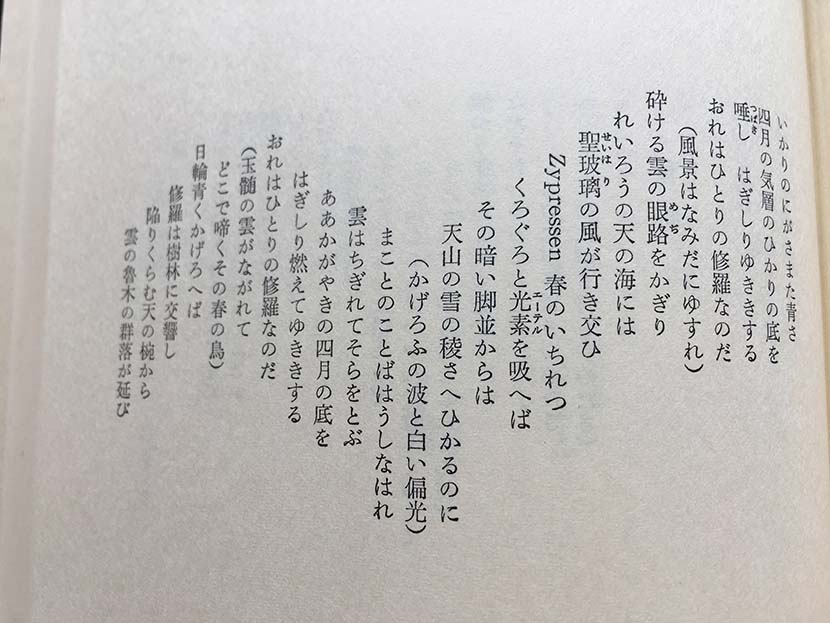 いかりのにがさまた青さ
四月の気層のひかりの底を
唾し　はぎしりゆききする
おれはひとりの修羅なのだ
（風景はなみだにゆすれ）
砕ける雲の眼路をかぎり
れいろうの天の海には
聖玻璃の風が行き交ひ
Zypressen　春のいちれつ
くろぐろと光素を吸へば
その暗い脚並からは
天山の雪の稜さへひかるのに
（かげろふの波と白い偏光）
まことのことばはうしなはれ
雲はちぎれてそらをとぶ
ああかがやきの四月の底を
はぎしり燃えてゆききする
おれはひとりの修羅なのだ
（玉髄の雲がながれて
どこで啼くその春の鳥）
日輪青くかげろへば
修羅は樹林に交響し
陥りくらむ天の椀から
雲の魯木の群落が延び